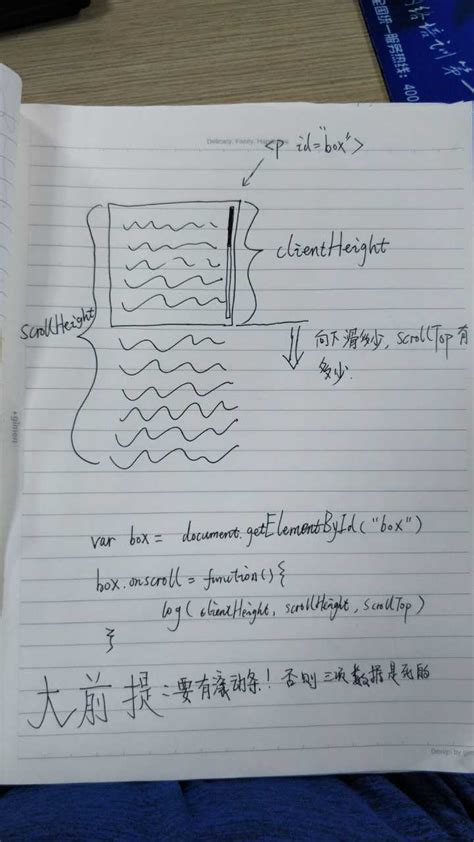 给培训第一
全国统一服务热线：400
<p id="box">
clientHeight
scrollHeight
向下滑多少, scrollTop 有
多少.
var box = document.getElementById("box")
box.onscroll = function(){
log( clientHeight, scrollHeight, scrollTop )
}
大前提：要有滚动条！否则三项数据是死的